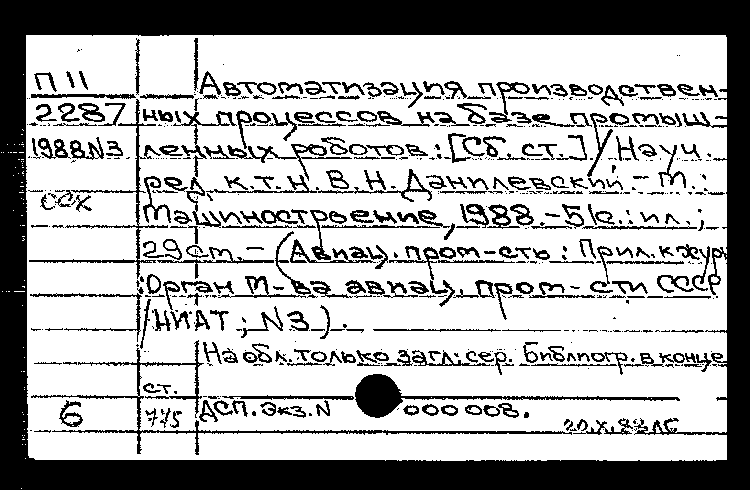 П 11 Автоматизация производствен-
2287 ных процессов на базе промыш-
1988 N3 ленных роботов : [Сб. ст.] / Науч.
ред. к.т.н. В.Н. Данилевский. - М. :
ССХ Машиностроение, 1988. - 51с. : ил. ;
29 см. - (Авиац. пром-сть : Прил. к журн
Орган М-ва авиац. пром-сти СССР
/НИАТ ; N3).
На обл. только загл. сер. Библиогр. в конце
ст.
6 775 ДСП. Экз. N 000008.
20.X.88 ЛС